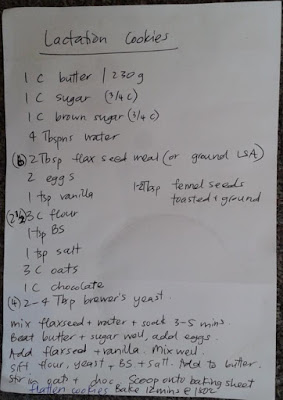 Lactation Cookies
1 C butter / 230g
1 C sugar (3/4 C)
1 C brown sugar (3/4 C)
4 Tbspns water
(6) 2 Tbsp flax seed meal (or ground LSA)
2 eggs
1 tsp vanilla
1-2 Tbsp fennel seeds
toasted + ground
(2 1/2) 3 C flour
1 tsp BS
1 tsp salt
3 C oats
1 C chocolate
(4) 2-4 Tbsp brewer's yeast.
mix flaxseed + water + soak 3-5 mins.
Beat butter + sugar well, add eggs.
Add flaxseed + vanilla. Mix well.
Sift flour, yeast + BS + salt. Add to butter.
Stir in oats + choc. Scoop onto baking sheet
flatten cookies Bake 12 mins @ 180°C